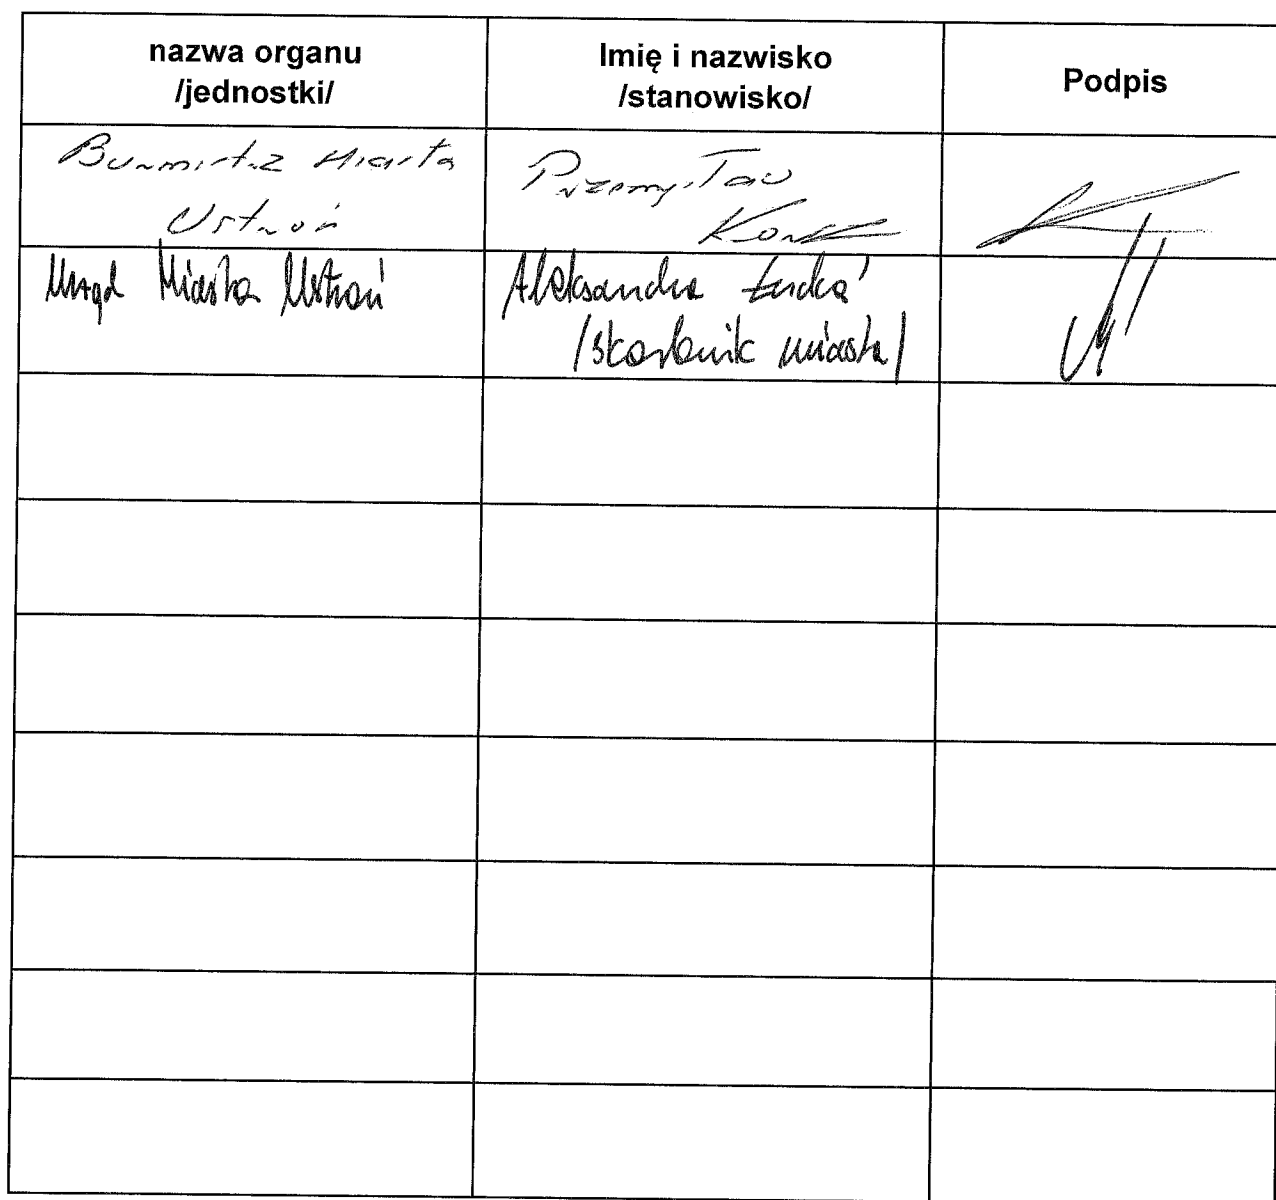 nazwa organu
/jednostki/
Imię i nazwisko
/stanowisko/
Podpis
Burmistrz Miasta
Ustroń
Przemysław
Urząd Miasta Ustroń
Aleksandra Łucka
/skarbnik miasta/